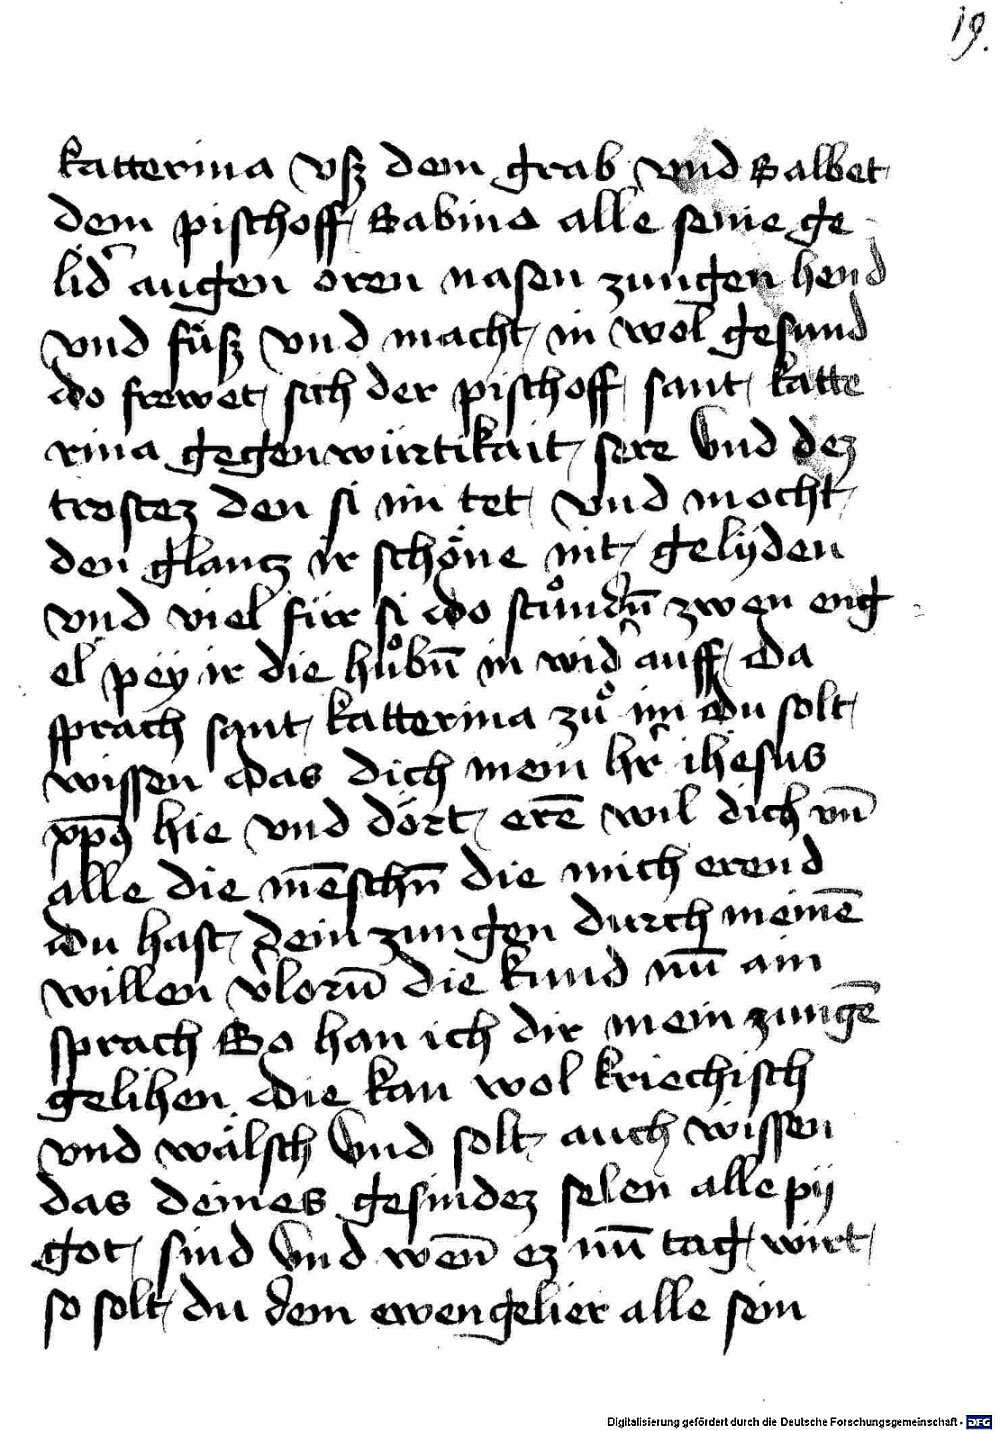 19.
katterina vsz dem grab vnd Salbet
dem pischoff Sabino alle seine ge
lid͛ augen oren nasen zungen hend
vnd fu̍sz vnd macht in wol gesund
do frewet sich der pischoff sant katte
rina gegenwürtikait sere Vnd dez
trostez den si im tet vnd mocht
den glantz ir schöne nit gelÿden
vnd viel für si do stůndn̄ zwen eng
el peÿ ir die hůbn̄ in wid͛ auff Da
sprach sant katterina zů im Du solt
wissen das dich mein hr͛ ihesus
xp̄s hie vnd dórt erē wil dich vn̄
alle die mēschn̄ die mich erend
du hast dein zungen durch meinē
willen v͛lorn̄ die kund nun̄ ain
sprach So han ich dir mein zungē
gelihen die kan wol kriechisch
vnd wälsch Vnd solt auch wissen
das deines gesindez selen alle pÿ
got sind Vnd wen̄ ez nun̄ tag wirt
so solt du dem ewengelier alle sein
Digitalisierung gefördert durch die Deutsche Forschungsgemeinschaft - DFG